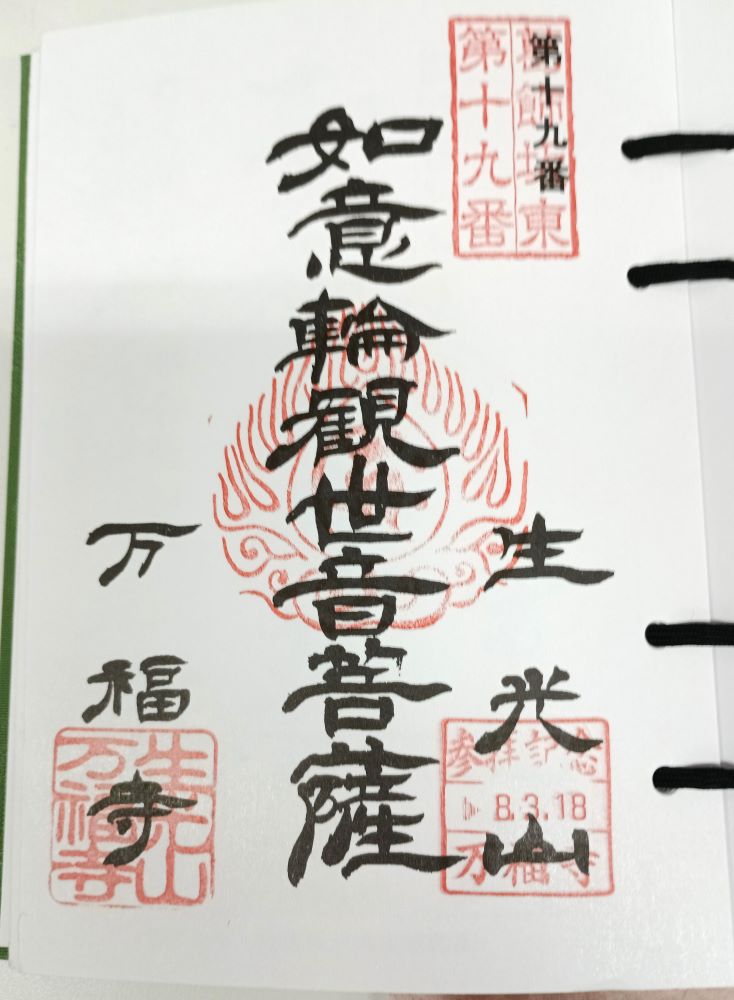 葛飾坂東
第十九番
第十九番
生光山
参拝記念
8.3.18
万福寺
如意輪観世音菩薩
万福寺
生光山
万福寺